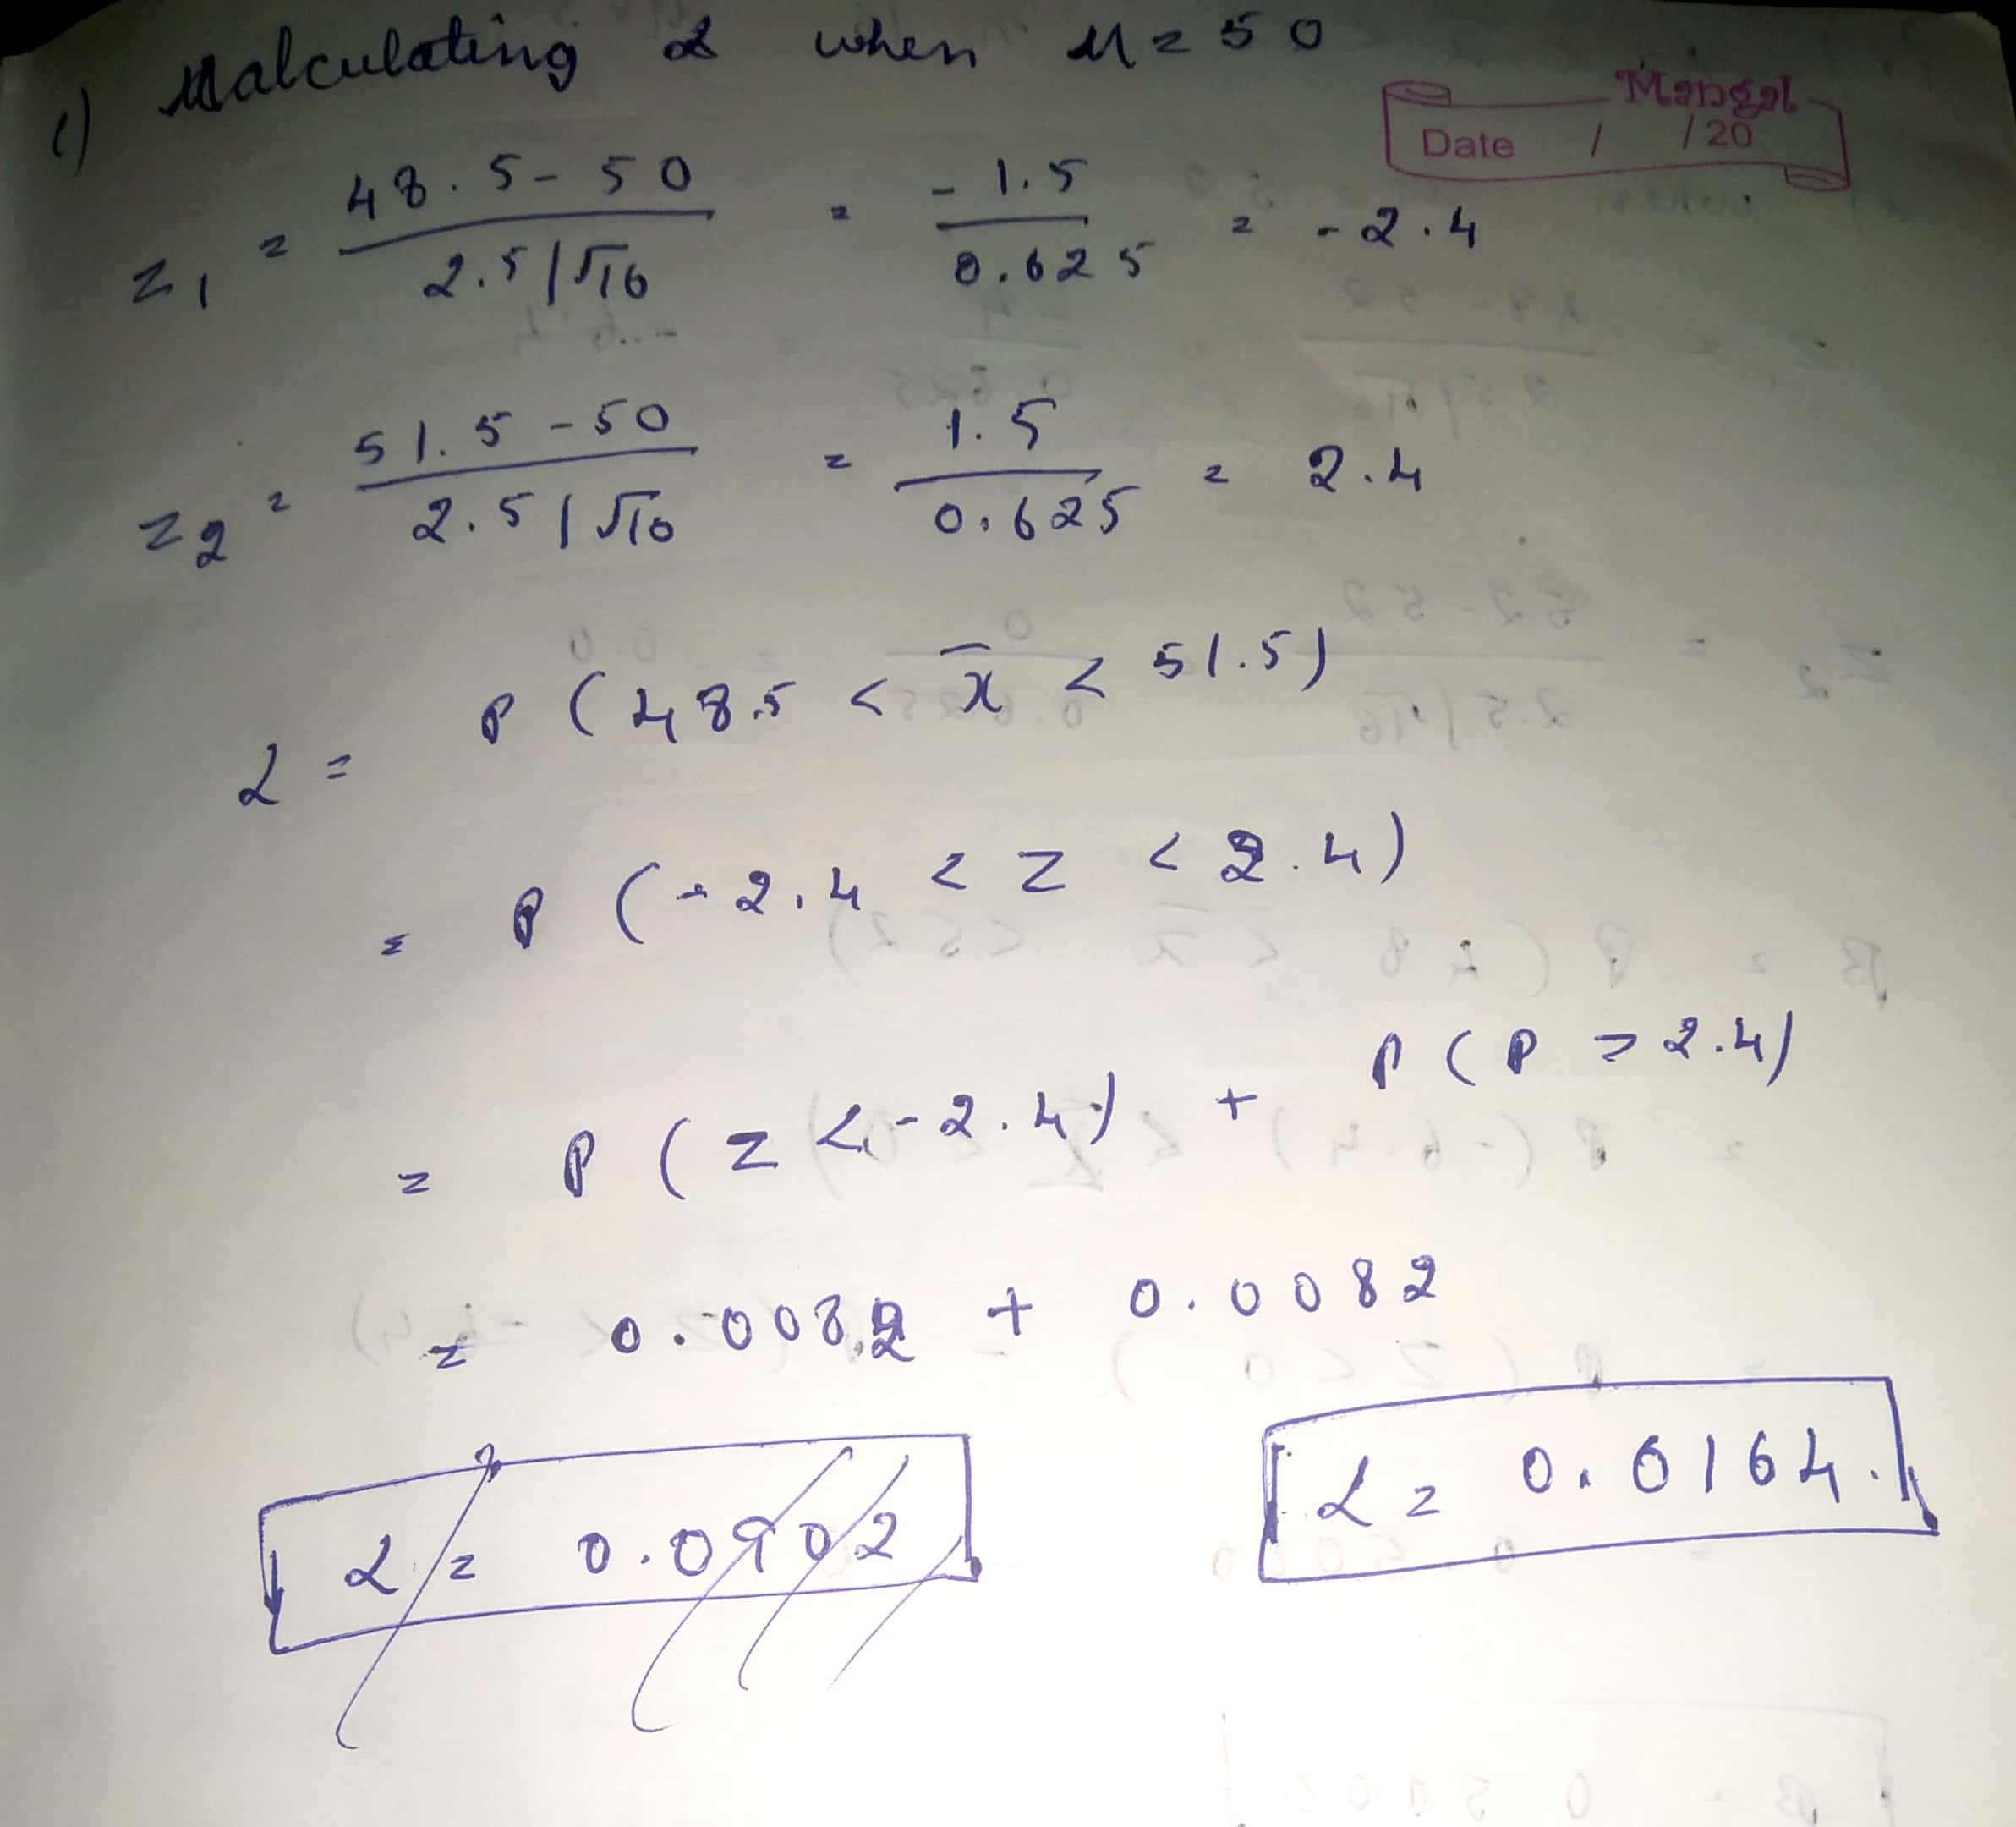 c) Calculating α when μ = 50
Mangal
Date / /20
z₁ = 48.5 - 50 / 2.5/√16 = -1.5 / 0.625 = -2.4
z₂ = 51.5 - 50 / 2.5/√16 = 1.5 / 0.625 = 2.4
α = P (48.5 < x̄ < 51.5)
= P (-2.4 < z < 2.4)
= P (z < -2.4) + P (P > 2.4)
= 0.0082 + 0.0082
α = 0.0164.